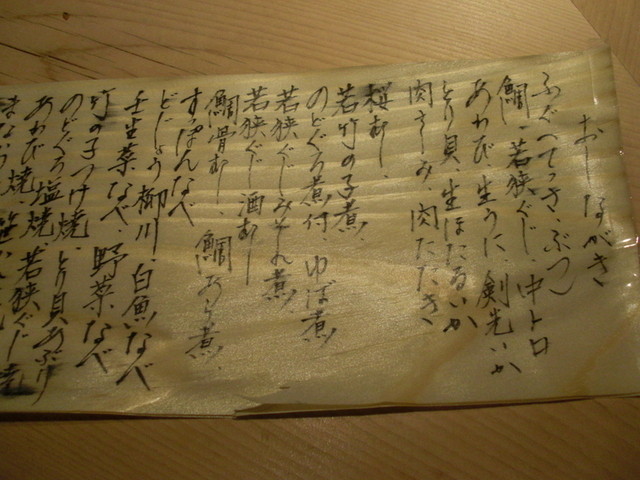 おしながき
ふぐ(てっさ、ぶつ)
鯛、若狭ぐじ、中トロ
あわび、生うに、剣先いか
とり貝、生ほたるいか
肉さしみ、肉たたき
桜むし、
若竹の子煮、
のどぐろ煮付、ゆば煮、
若狭ぐじみぞれ煮、
若狭ぐじ酒むし
鯛骨むし、鯛あら煮、
すっぽんなべ
どじょう柳川、白魚なべ
壬生菜なべ、野菜なべ
竹の子つけ焼、とり貝あぶり
のどぐろ塩焼、若狭ぐじ焼
あわび焼